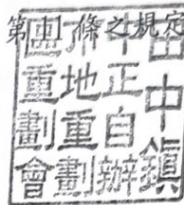 第11條之規定
田中鎮
中正自辦
市地重劃
區重劃會